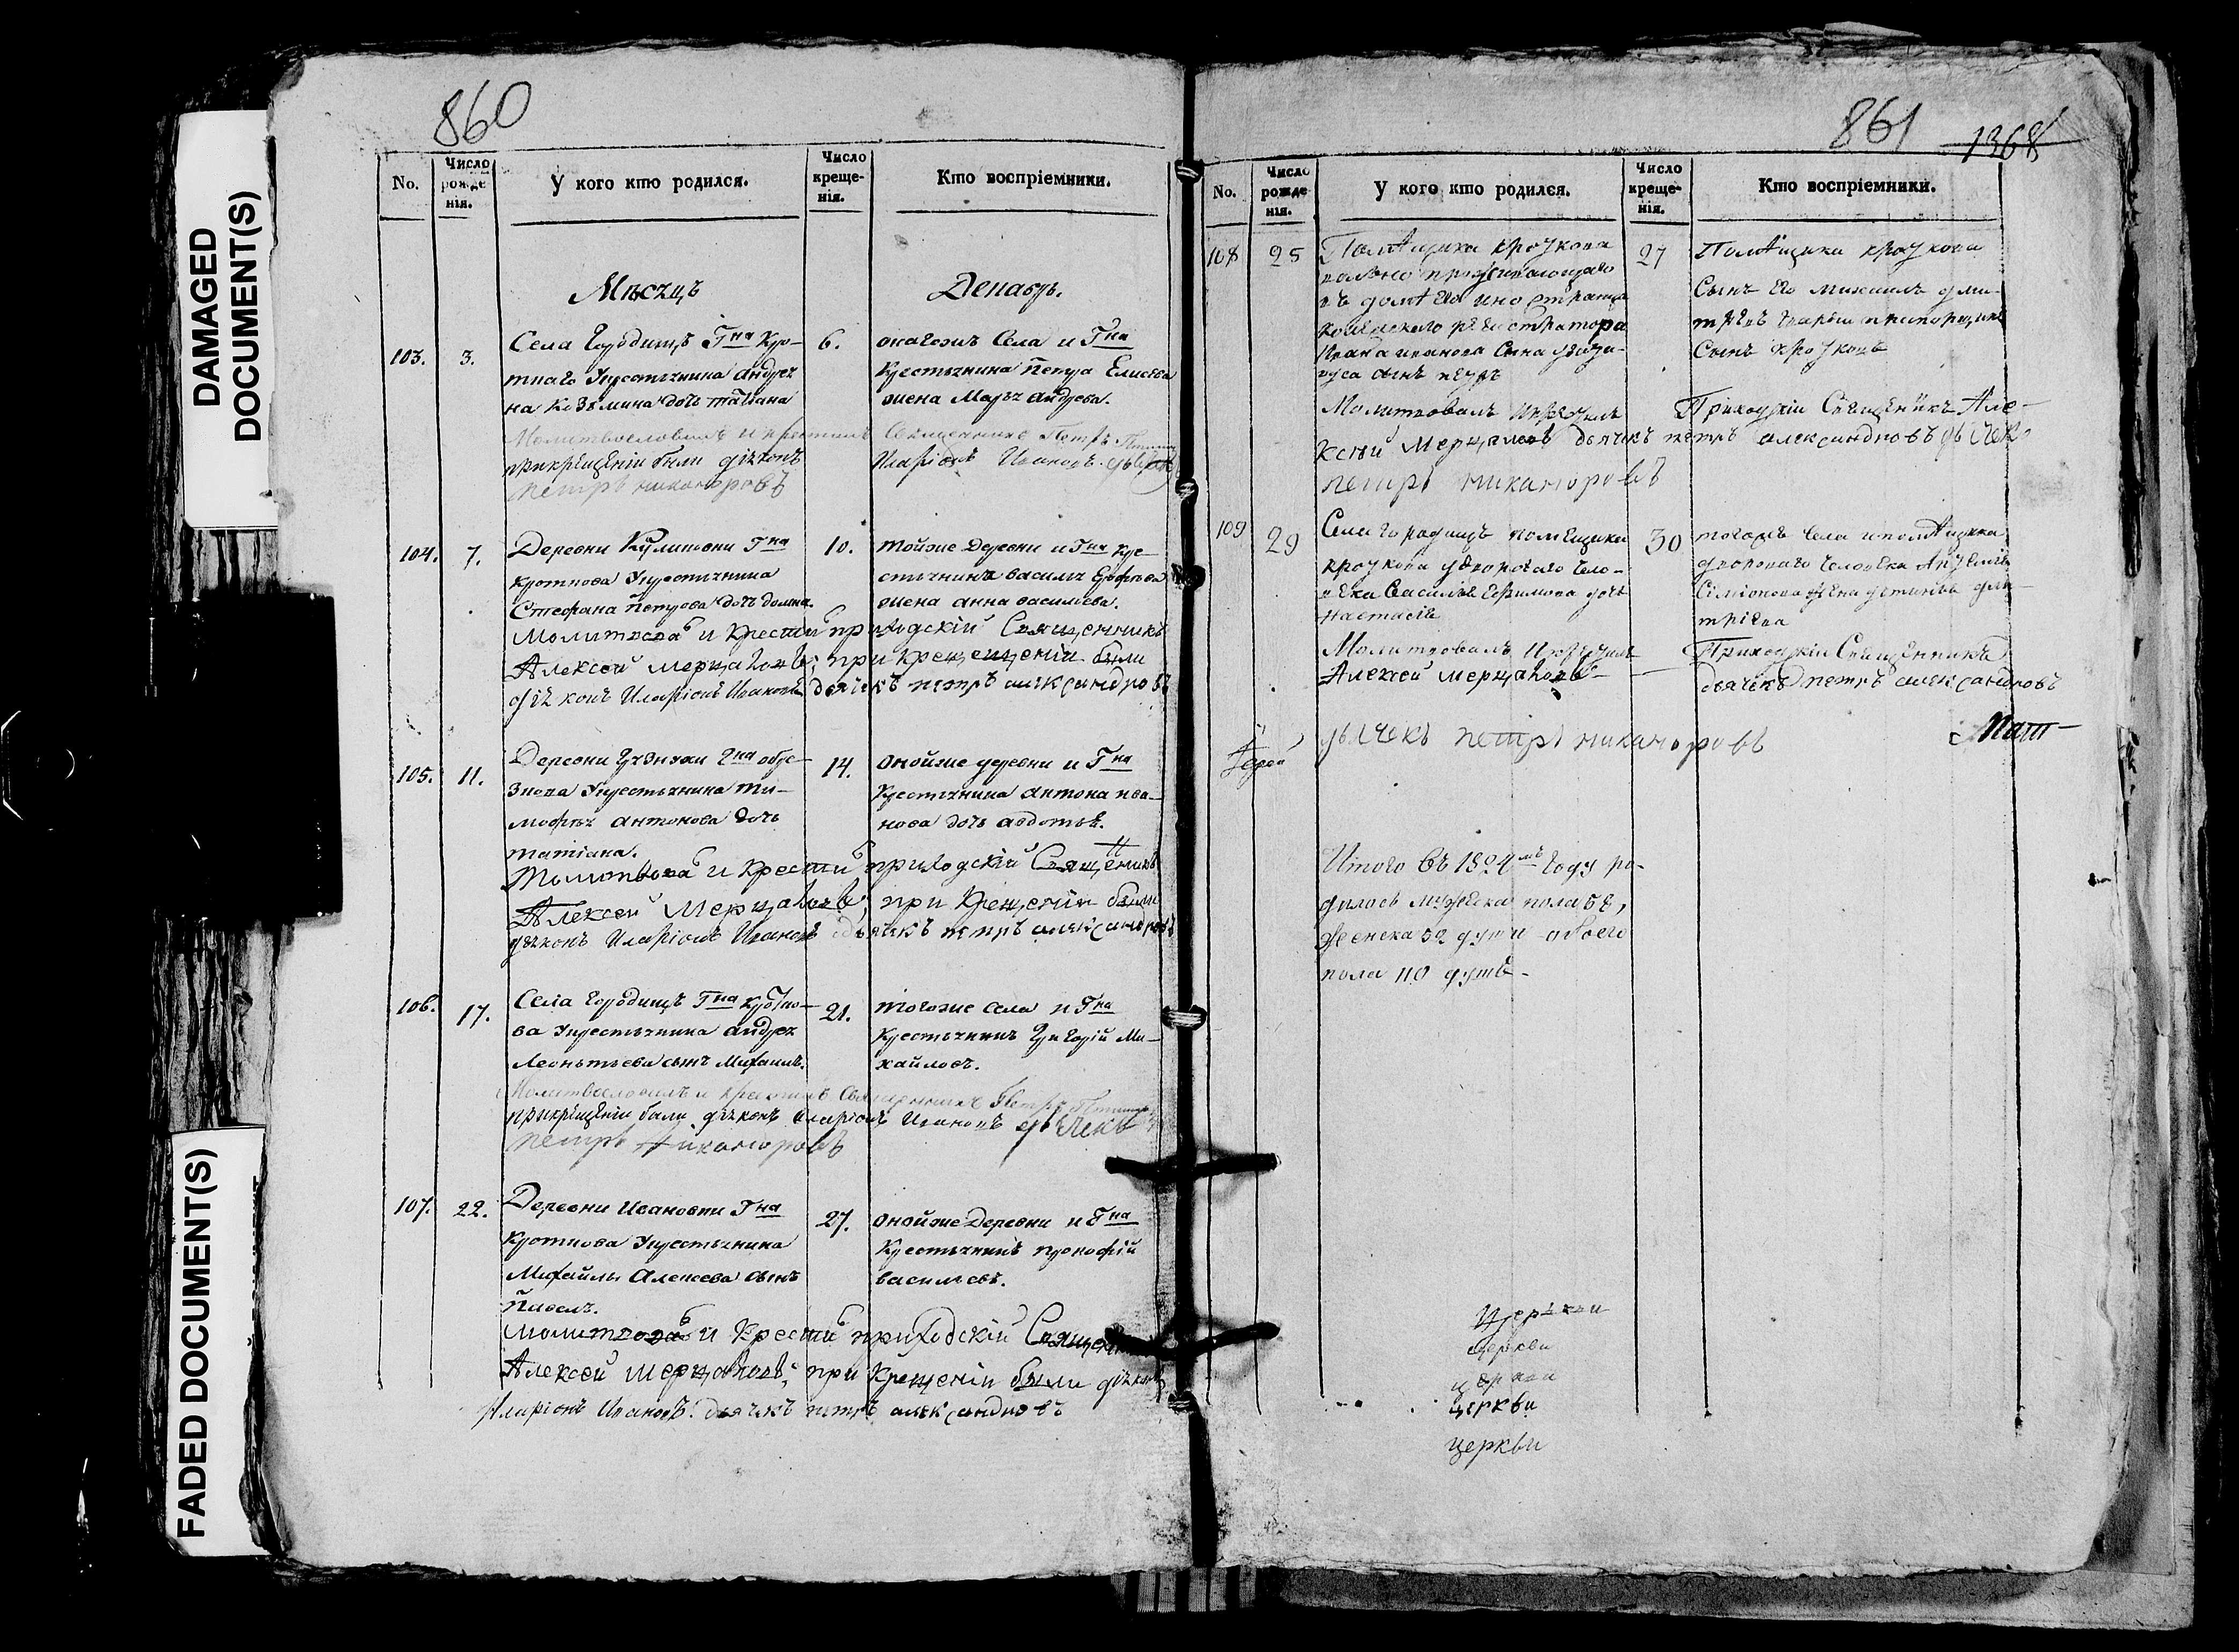 DAMAGED
DOCUMENT(S)
FADED DOCUMENT(S)
860
No.
Число рожде нія.
У кого кто родился.
Число креще- нія.
Кто воспріемники.
Мѣсяцъ
Декабрь.
103.
3.
Села Городищъ Гна Кро-
ткаго Укрестьянина андрея
на Козьмина дочь татiана
6.
онагожъ Села и Гна
Крестьянина Петра Елисѣева
жена Марья андреева.
Молитвословилъ и крестилъ Священникъ Петръ
прикрещеніи были діяконъ Иларіонъ Ивановъ дьячекъ
петръ никаноровъ
104.
7.
Деревни Гна
кроткова Укрестьянина
Стефана Петрова дочь домна.
10.
тойже Деревни и Гна кре-
стьянина василья Ефимова
жена анна васильева.
Молитвова и Крести приходскій Священникъ
Алексей Мерцаловъ; при крещеніи были
діяконъ Иларіонъ Ивановъ дьячекъ петръ александровъ
105.
11.
Деревни Гна обре-
зкова Укрестьянина ти-
мофея антонова дочь
татіана.
14.
онойже деревни и Гна
Крестьянина антона ива-
нова дочь авдотья.
Молитвова и Крести приходскій Священникъ
Алексей Мерцаловъ; при Крещеніи были
діяконъ Иларіонъ Ивановъ дьячекъ петръ александровъ
106.
17.
Села Городищъ Гна кротко-
ва Укрестьянина андрея
Леонтьева сынъ Михаилъ.
21.
тогоже села и Гна
Крестьянинъ Григорій Ми-
хайловъ.
Молитвословилъ и крестилъ Священникъ Петръ
прикрещеніи были діяконъ Иларіонъ Ивановъ дьячекъ
петръ никаноровъ
107.
22.
Деревни Ивановки Гна
Кроткова Укрестьянина
Михайлы Алексеева сынъ
Павелъ.
27.
онойже Деревни и Гна
Крестьянинъ прокофій
васильевъ.
Молитвова и Крести приходскій Священникъ
Алексей Мерцаловъ; при Крещеніи были діяконъ
Иларіонъ Ивановъ дьячекъ петръ александровъ
861
1368
No.
Число рожде нія.
У кого кто родился.
Число креще- нія.
Кто воспріемники.
108
25
Помѣщика кроткова
вольно проживающаго
въ домѣ его иностранца
регистратора
Ивана иванова Сына
сынъ петръ
27
Помѣщика кроткова
Сынъ его михаилъ дми-
тріевъ
Сынъ кротковъ
Молитвовалъ икрестилъ Приходскій Священникъ Але-
ксѣй Мерцаловъ дьячекъ петръ александровъ дьячекъ
петръ никаноровъ
109
29
Села городищъ помѣщика
кроткова удвороваго чело-
века Василья Ефимова дочь
настасія
30
тогожъ села ипомѣщика
двороваго человека
Симіонова жена устинья дми-
тріева
Молитвовалъ икрестилъ Приходскій Священникъ
Алексей мерцаловъ дьячекъ петръ александровъ
дьячекъ петръ никаноровъ
Итого въ 1824мъ году ро-
дилось мужеска пола 58,
женска 52 души обоего
пола 110 душъ
церкви
церкви
церкви
церкви